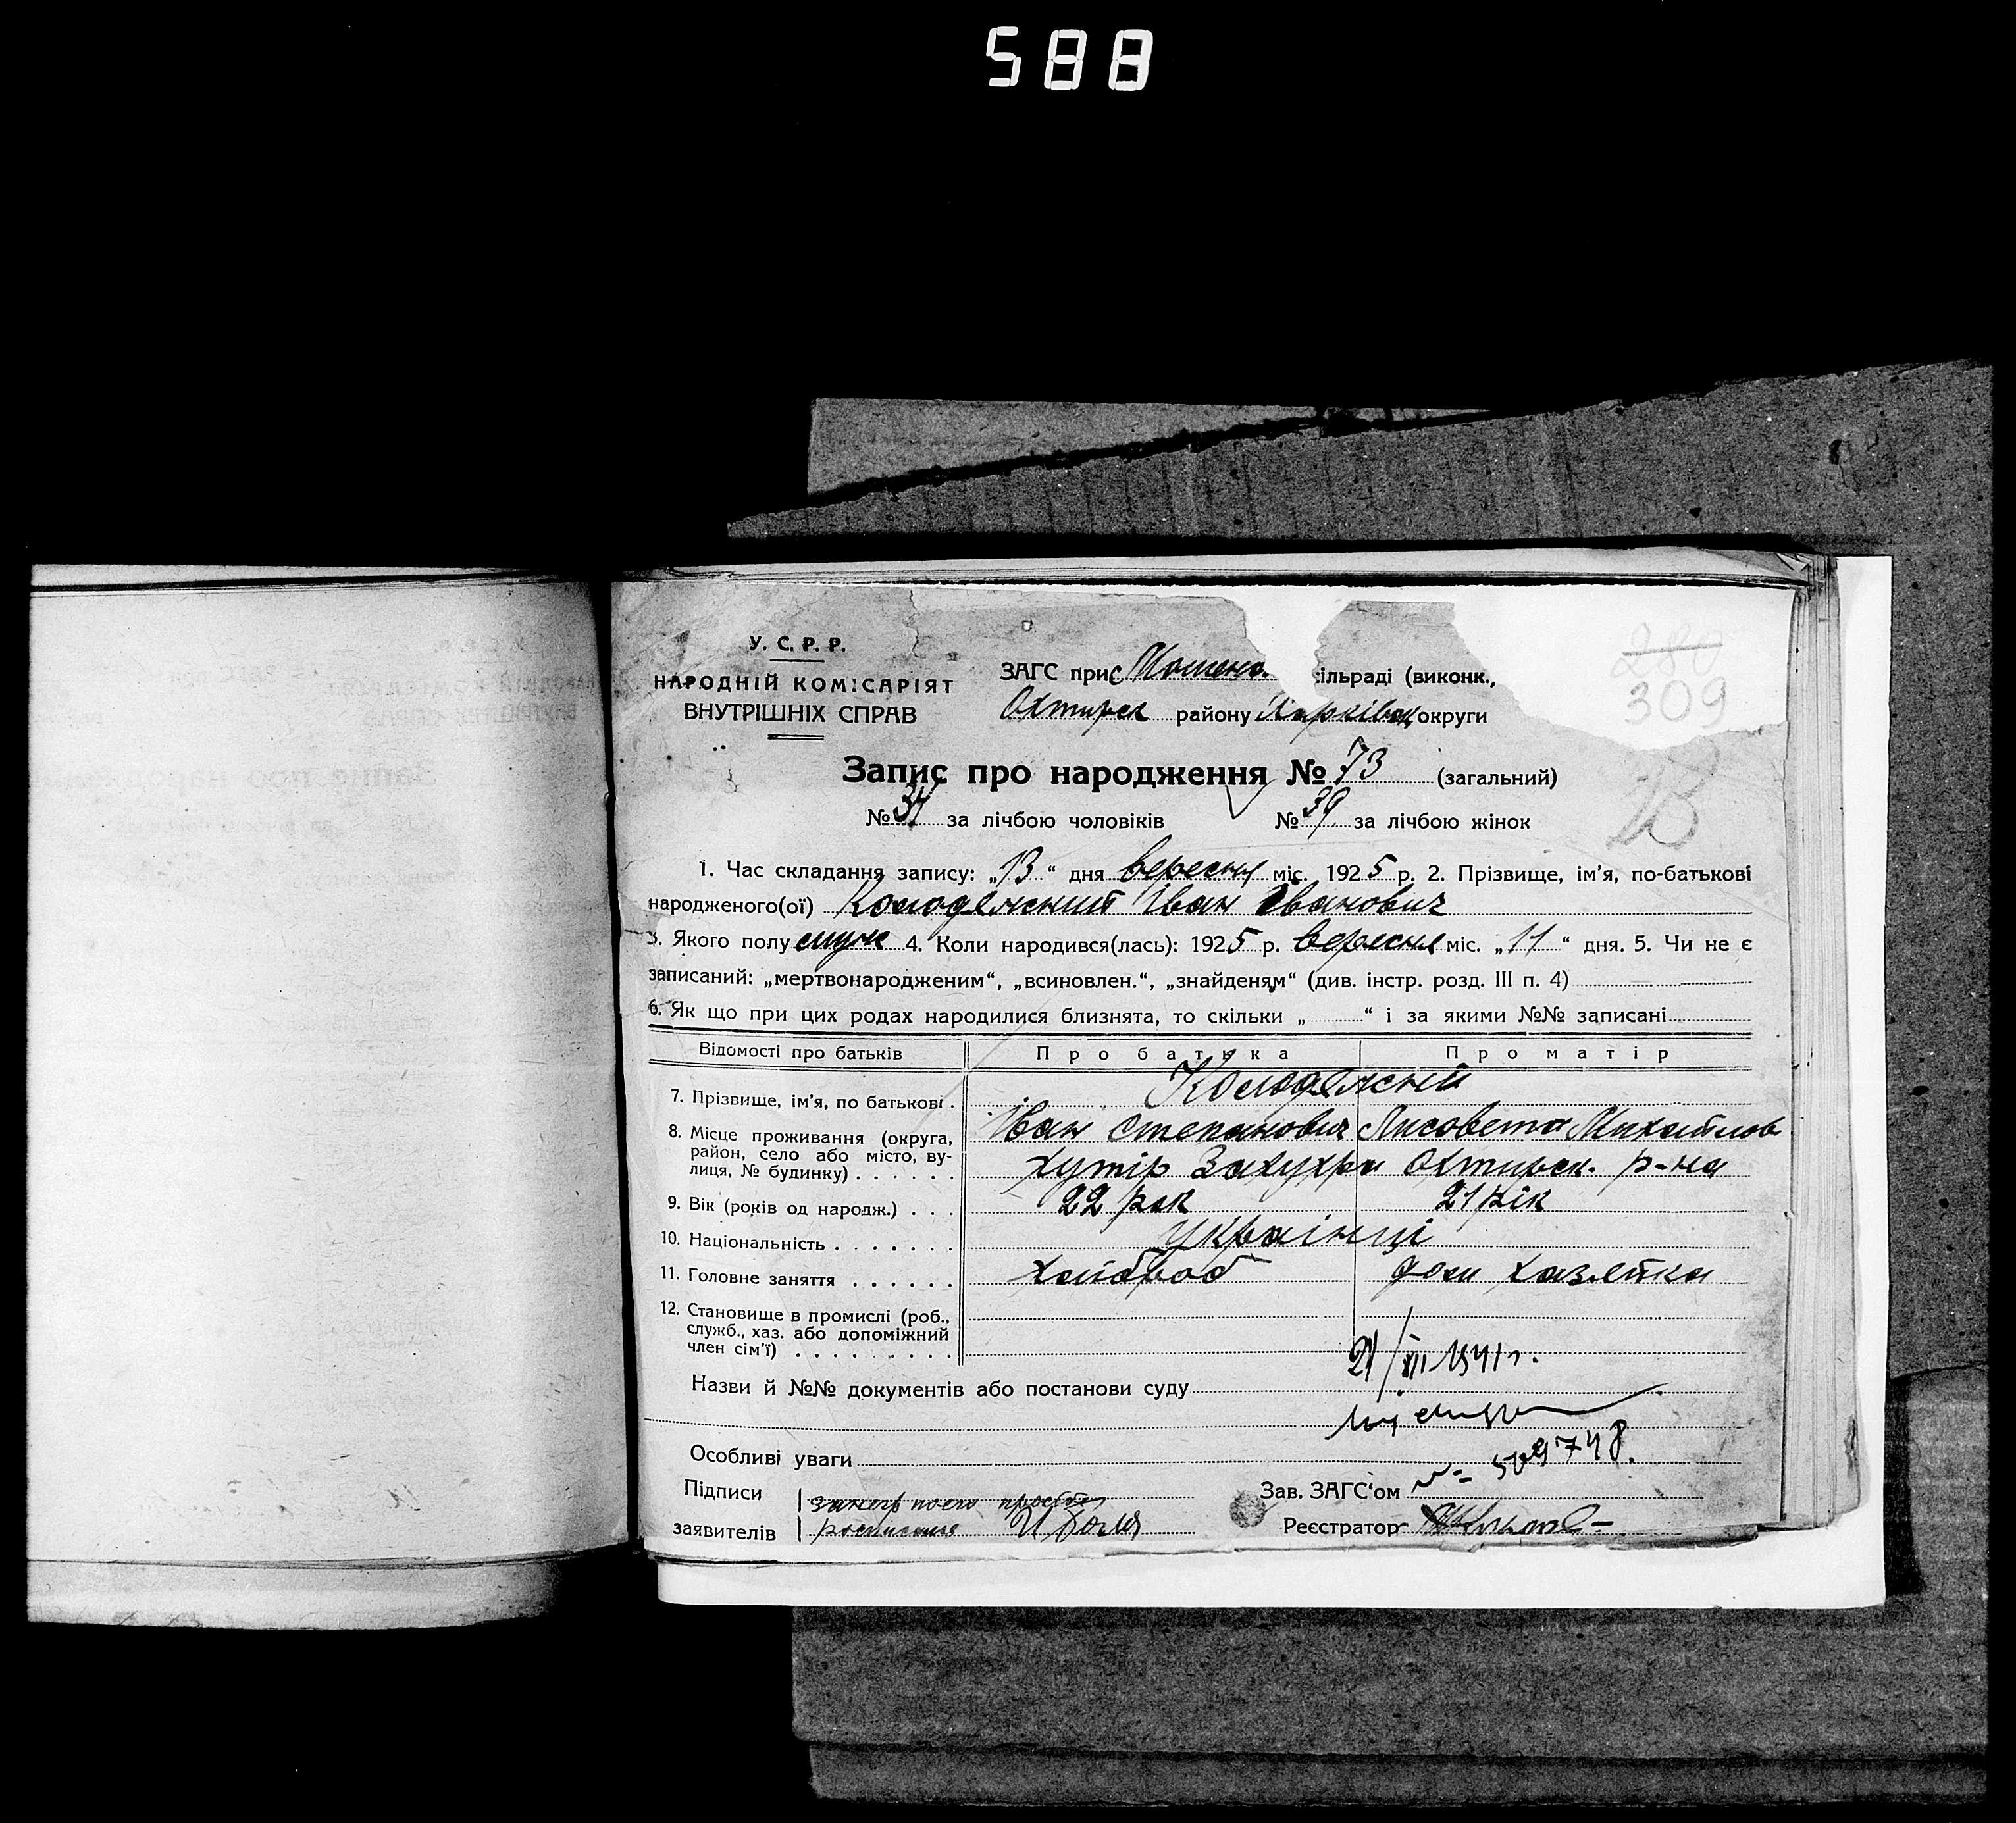 588
У. С. Р. Р.
НАРОДНІЙ КОМІСАРІЯТ
ВНУТРІШНІХ СПРАВ
ЗАГС при с ільраді (виконк.,
Охтирск району Харківськ округи
280
309
Запис про народження № 73 (загальний)
№ 34 за лічбою чоловіків № 39 за лічбою жінок
1. Час складання запису: „13“ дня вересня міс. 1925 р. 2. Прізвище, ім'я, по-батькові
народженого(ої) Колодяжний Іван Іванович
3. Якого полу муж 4. Коли народився(лась): 1925 р. вересня міс. „11“ дня. 5. Чи не є
записаний: „мертвонародженим“, „всиновлен.“, „знайденям“ (див. інстр. розд. III п. 4)
6. Як що при цих родах народилися близнята, то скільки „ “ і за якими №№ записані
Відомості про батьків Про батька Про матір
Колодяжні
7. Прізвище, ім'я, по батькові .
Іван Степанович Лисовета Михайлов
8. Місце проживання (округа,
район, село або місто, ву-
лиця, № будинку) . . . . . .
хутір Охтирск. р-на
9. Вік (років од народж.) . . . 22 рок 21 рік
10. Національність . . . . . . . українці
11. Головне заняття . . . . . . хліброб дом хазяйка
12. Становище в промислі (роб.,
служб., хаз. або допоміжний
член сім'ї) . . . . . . . . .
21/VII 1941 г.
Назви й №№ документів або постанови суду
Особливі уваги
№ 509748.
Підписи
Зав. ЗАГС'ом
заявителів
Реєстратор